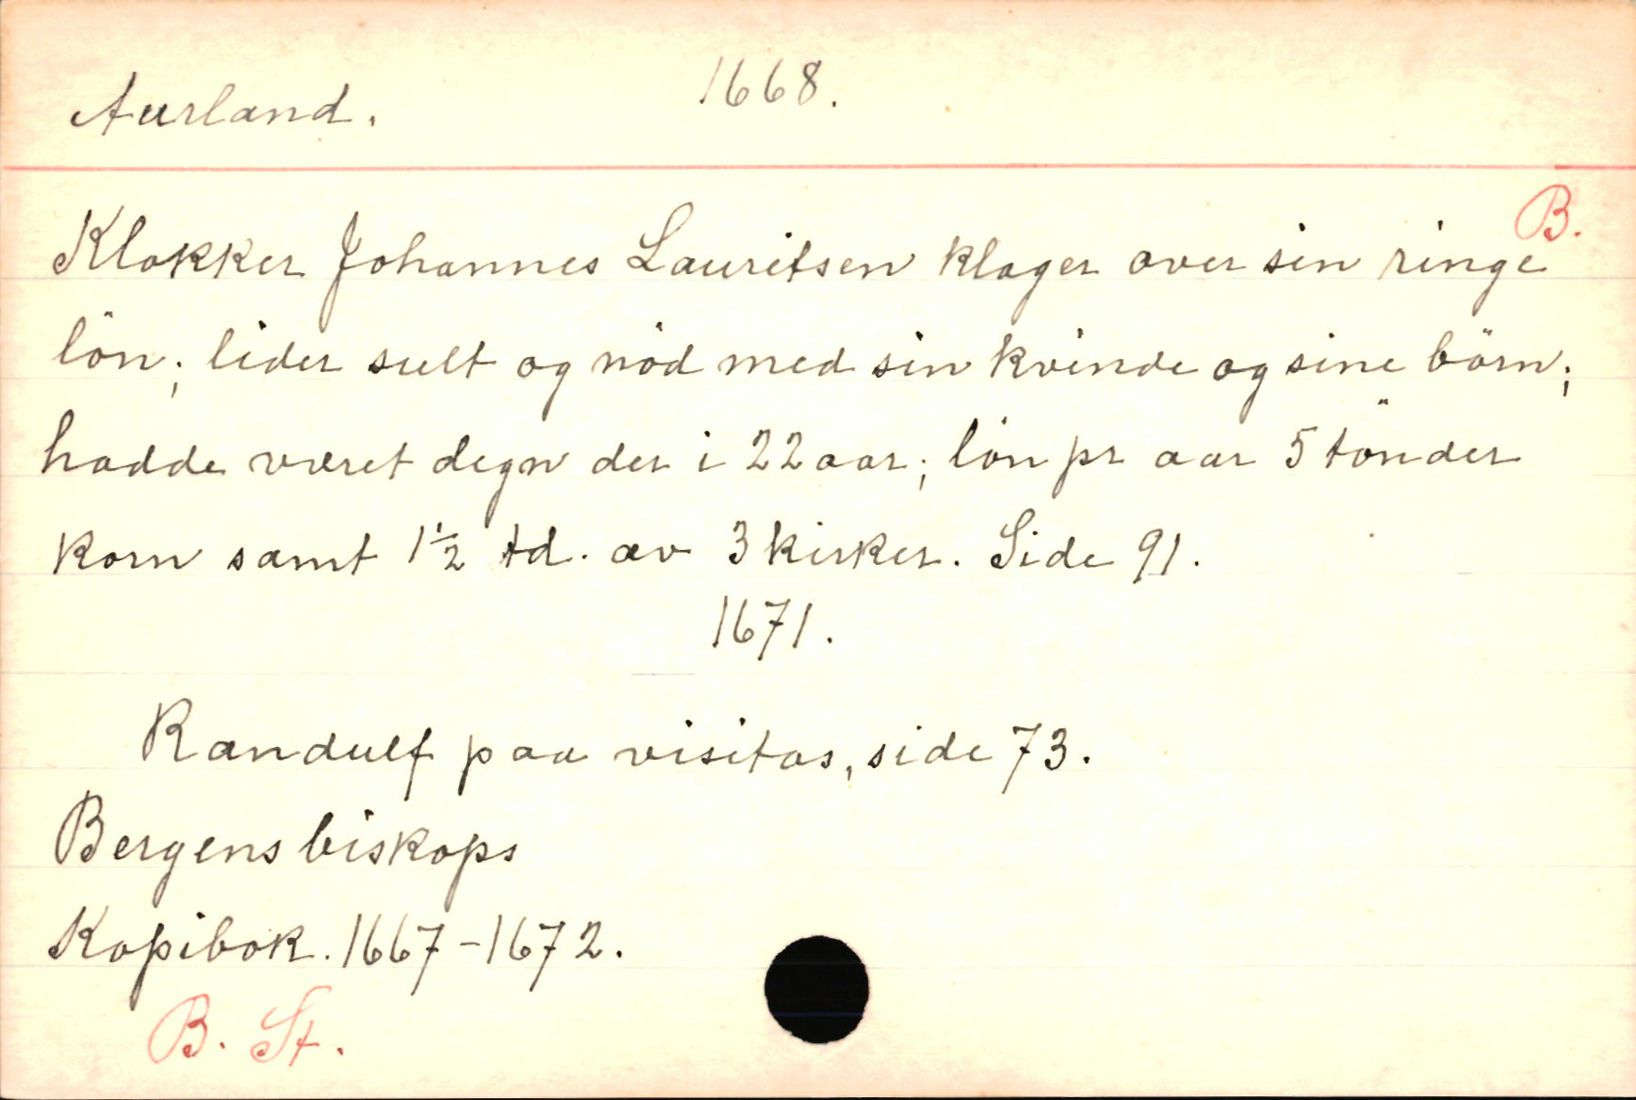 Aurland. 1668.
B.
Klokker Johannes Lauritsen klager over sin ringe
lön; lider sult og nöd med sin kvinde og sine börn;
hadde været degn der i 22 aar; lön pr aar 5 tönder
korn samt 1½ td. av 3 kirker. Side 91.
1671.
Randulf paa visitas, side 73.
Bergens biskops
Kopibok. 1667-1672.
B. St.